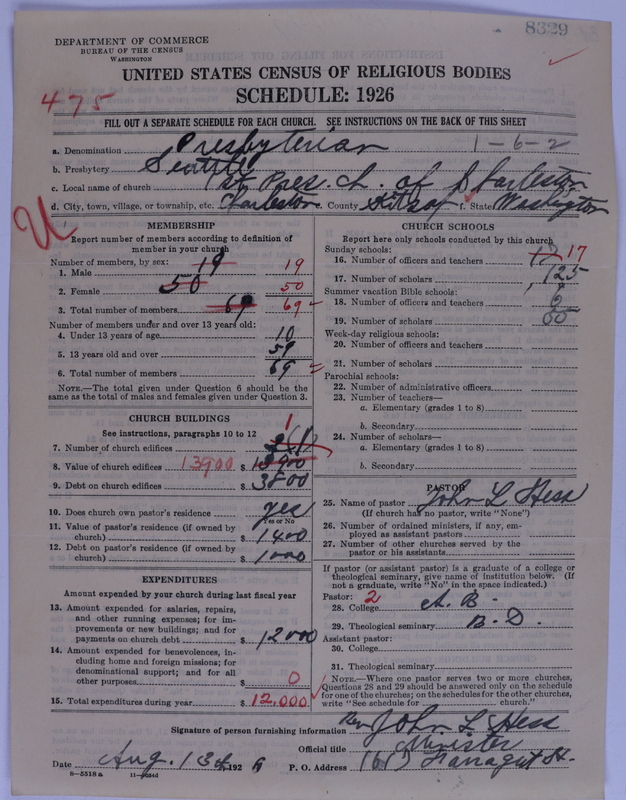 8329
DEPARTMENT OF COMMERCE
BUREAU OF THE CENSUS
WASHINGTON
UNITED STATES CENSUS OF RELIGIOUS BODIES
SCHEDULE: 1926
475
FILL OUT A SEPARATE SCHEDULE FOR EACH CHURCH. SEE INSTRUCTIONS ON THE BACK OF THIS SHEET
a. Denomination Presbyterian 1-6-2
b. Presbytery Seattle
c. Local name of church 1st Pres. Ch. of Charleston
d. City, town, village, or township, etc. Charleston e. County Kitsap f. State Washington
U
MEMBERSHIP
Report number of members according to definition of
member in your church
Number of members, by sex:
1. Male 19 19
2. Female 50 50
3. Total number of members 69 69
Number of members under and over 13 years old:
4. Under 13 years of age 10
5. 13 years old and over 59
6. Total number of members 69
NOTE.—The total given under Question 6 should be the
same as the total of males and females given under Question 3.
CHURCH BUILDINGS
See instructions, paragraphs 10 to 12
7. Number of church edifices 2 (1) 1
8. Value of church edifices 13900 $ 13900
9. Debt on church edifices $ 3800
10. Does church own pastor's residence yes
Yes or No
11. Value of pastor's residence (if owned by
church) $ 1400
12. Debt on pastor's residence (if owned by
church) $ 1000
EXPENDITURES
Amount expended by your church during last fiscal year
13. Amount expended for salaries, repairs,
and other running expenses; for im-
provements or new buildings; and for
payments on church debt $ 12000
14. Amount expended for benevolences, in-
cluding home and foreign missions; for
denominational support; and for all
other purposes $ 0
15. Total expenditures during year $ 12,000
CHURCH SCHOOLS
Report here only schools conducted by this church
Sunday schools:
16. Number of officers and teachers 17 17
17. Number of scholars 125
Summer vacation Bible schools:
18. Number of officers and teachers
19. Number of scholars
Week-day religious schools:
20. Number of officers and teachers
21. Number of scholars
Parochial schools:
22. Number of administrative officers
23. Number of teachers—
a. Elementary (grades 1 to 8)
b. Secondary
24. Number of scholars—
a. Elementary (grades 1 to 8)
b. Secondary
PASTOR
25. Name of pastor John L Hess
(If church has no pastor, write "None")
26. Number of ordained ministers, if any, em-
ployed as assistant pastors
27. Number of other churches served by the
pastor or his assistants
If pastor (or assistant pastor) is a graduate of a college or
theological seminary, give name of institution below. (If
not a graduate, write "No" in the space indicated.)
Pastor: 2
28. College A. B.
29. Theological seminary B. D.
Assistant pastor:
30. College
31. Theological seminary
NOTE.—Where one pastor serves two or more churches,
Questions 28 and 29 should be answered only on the schedule
for one of the churches; on the schedules for the other churches,
write "See schedule for church."
Signature of person furnishing information Rev John L Hess
Official title Minister
Date Aug. 13th, 1926 P. O. Address Farragut St.
8—5518a